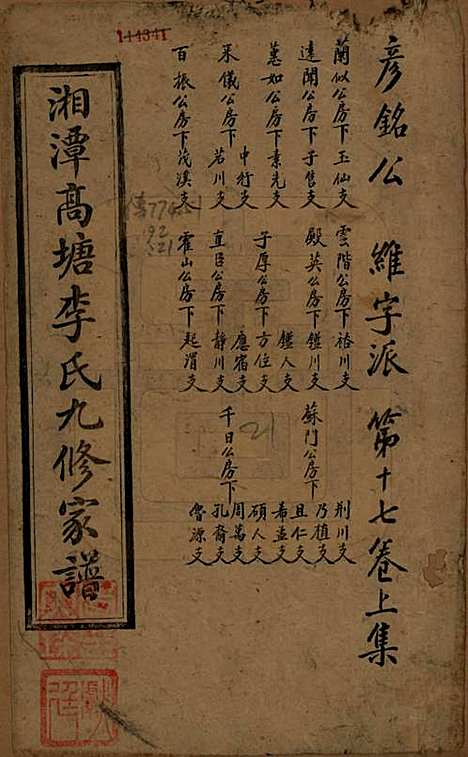 彥銘公　維字派　第十七卷上集
蘭似公房下玉仙支
達開公房下于售支
蕙如公房下素先支
采儀公房下
中行
若川支
百振公房下茂溪支
雲階公房下裕川支
殿英公房下鏗川支
鏗人支
子厚公房下方住支
應宿支
直臣公房下靜川支
霍山公房下起渭支
蘇門公房下
荆川支
乃植支
且仁支
希孟支
碩人支
千日公房下
周萬支
孔裔支
魯源支
湘潭高塘李氏九修家譜
144341
192
21